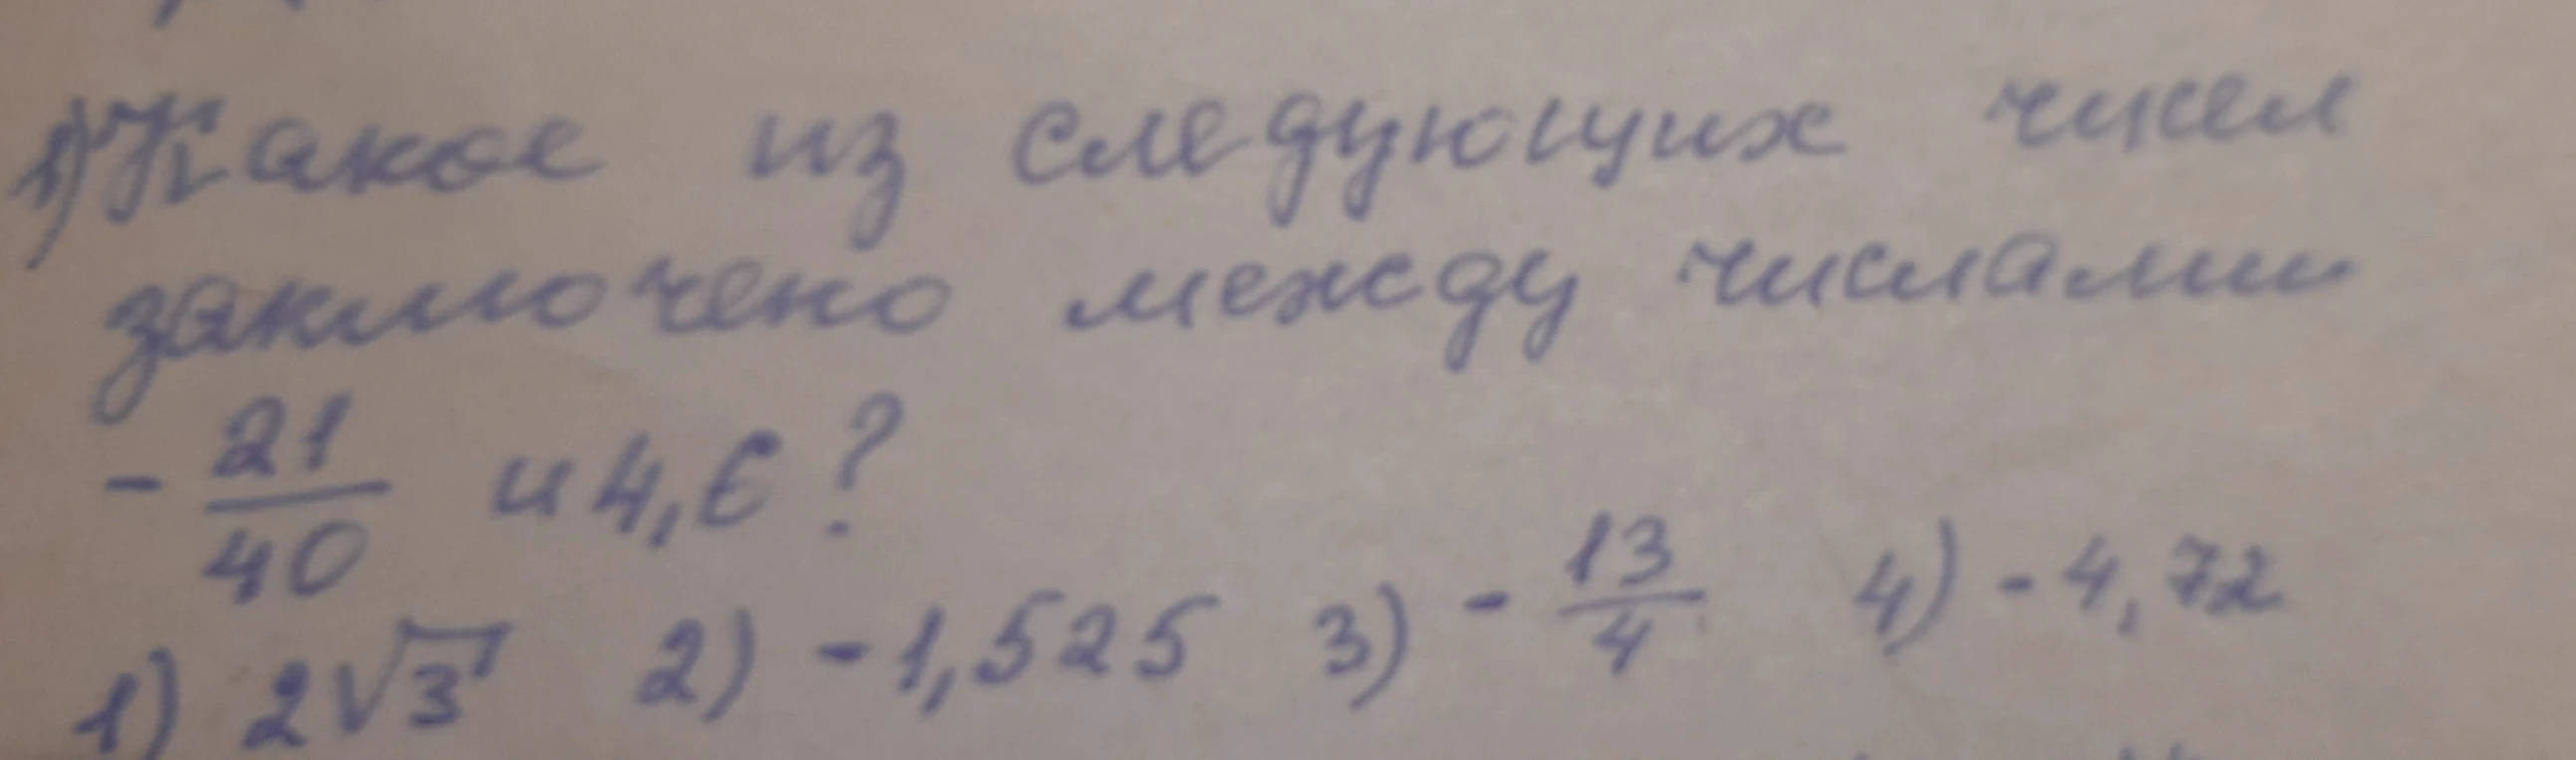 1) Какое из следующих чисел
заключено между числами
- 21/40 и 4,6?
1) 2√3 2) -1,525 3) - 13/4 4) -4,72